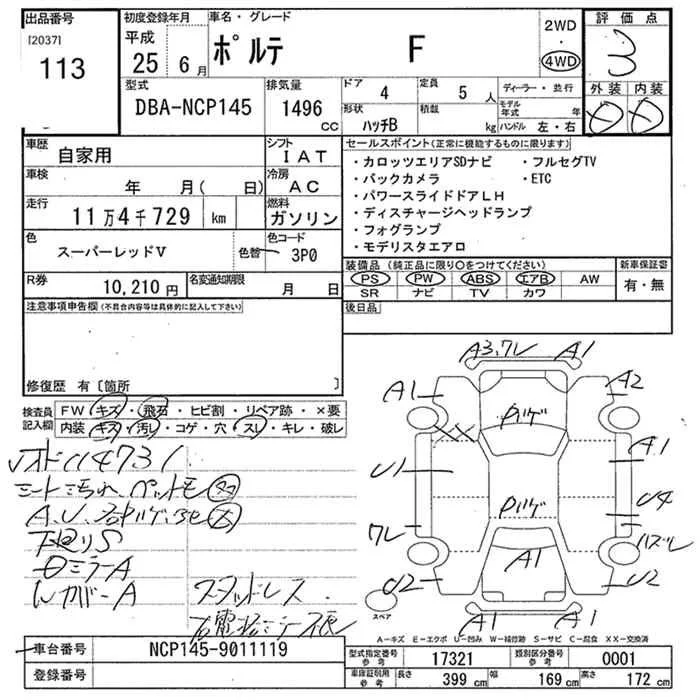 出品番号
[2037]
113
初度登録年月
平成
25 6月
車名・グレード
ポルテ F
2WD
・
4WD
評価点
3
外装 内装
型式
DBA-NCP145
排気量
1496
CC
ドア 4
定員 5 人
形状 ハッチB
積載 kg
ディーラー・並行
モデル年式 年
ハンドル 左・右
車歴
自家用
シフト
IAT
車検
年 月( 日)
冷房
AC
走行
11万4千729 km
燃料
ガソリン
色
スーパーレッドV
色替
色コード
3P0
R券
10,210 円
名変通知期限
月 日
セールスポイント(正常に機能するものに限ります)
・カロッツエリアSDナビ ・フルセグTV
・バックカメラ ・ETC
・パワースライドドアLH
・ディスチャージヘッドランプ
・フォグランプ
・モデリスタエアロ
装備品(純正品に限り○をつけてください)
PS PW ABS エアB AW
SR ナビ TV カワ
新車保証書
有・無
後日品
注意事項申告欄(不具合内容等は具体的に記入して下さい)
修復歴 有〔箇所 〕
検査員記入欄
FW キズ・飛石・ヒビ割・リペア跡・×要
内装 キズ・汚レ・コゲ・穴・スレ・キレ・破レ
114731
A、U、
下回りS
ミラーA
WカバーA
スタッドレス
A3,ワレ A1
A1 A2
ハゲ
A1
U1
ハゲ
U4
ワレ
ハズレ
A1
U2 U2
A1 A1
スペア
A−キズ E−エクボ U−凹み W−補修跡 S−サビ C−腐食 XX−交換済
車台番号
NCP145-9011119
登録番号
型式指定番号
参考
17321
類別区分番号
参考
0001
車庫証明用
参考
長さ 399 cm 幅 169 cm 高さ 172 cm